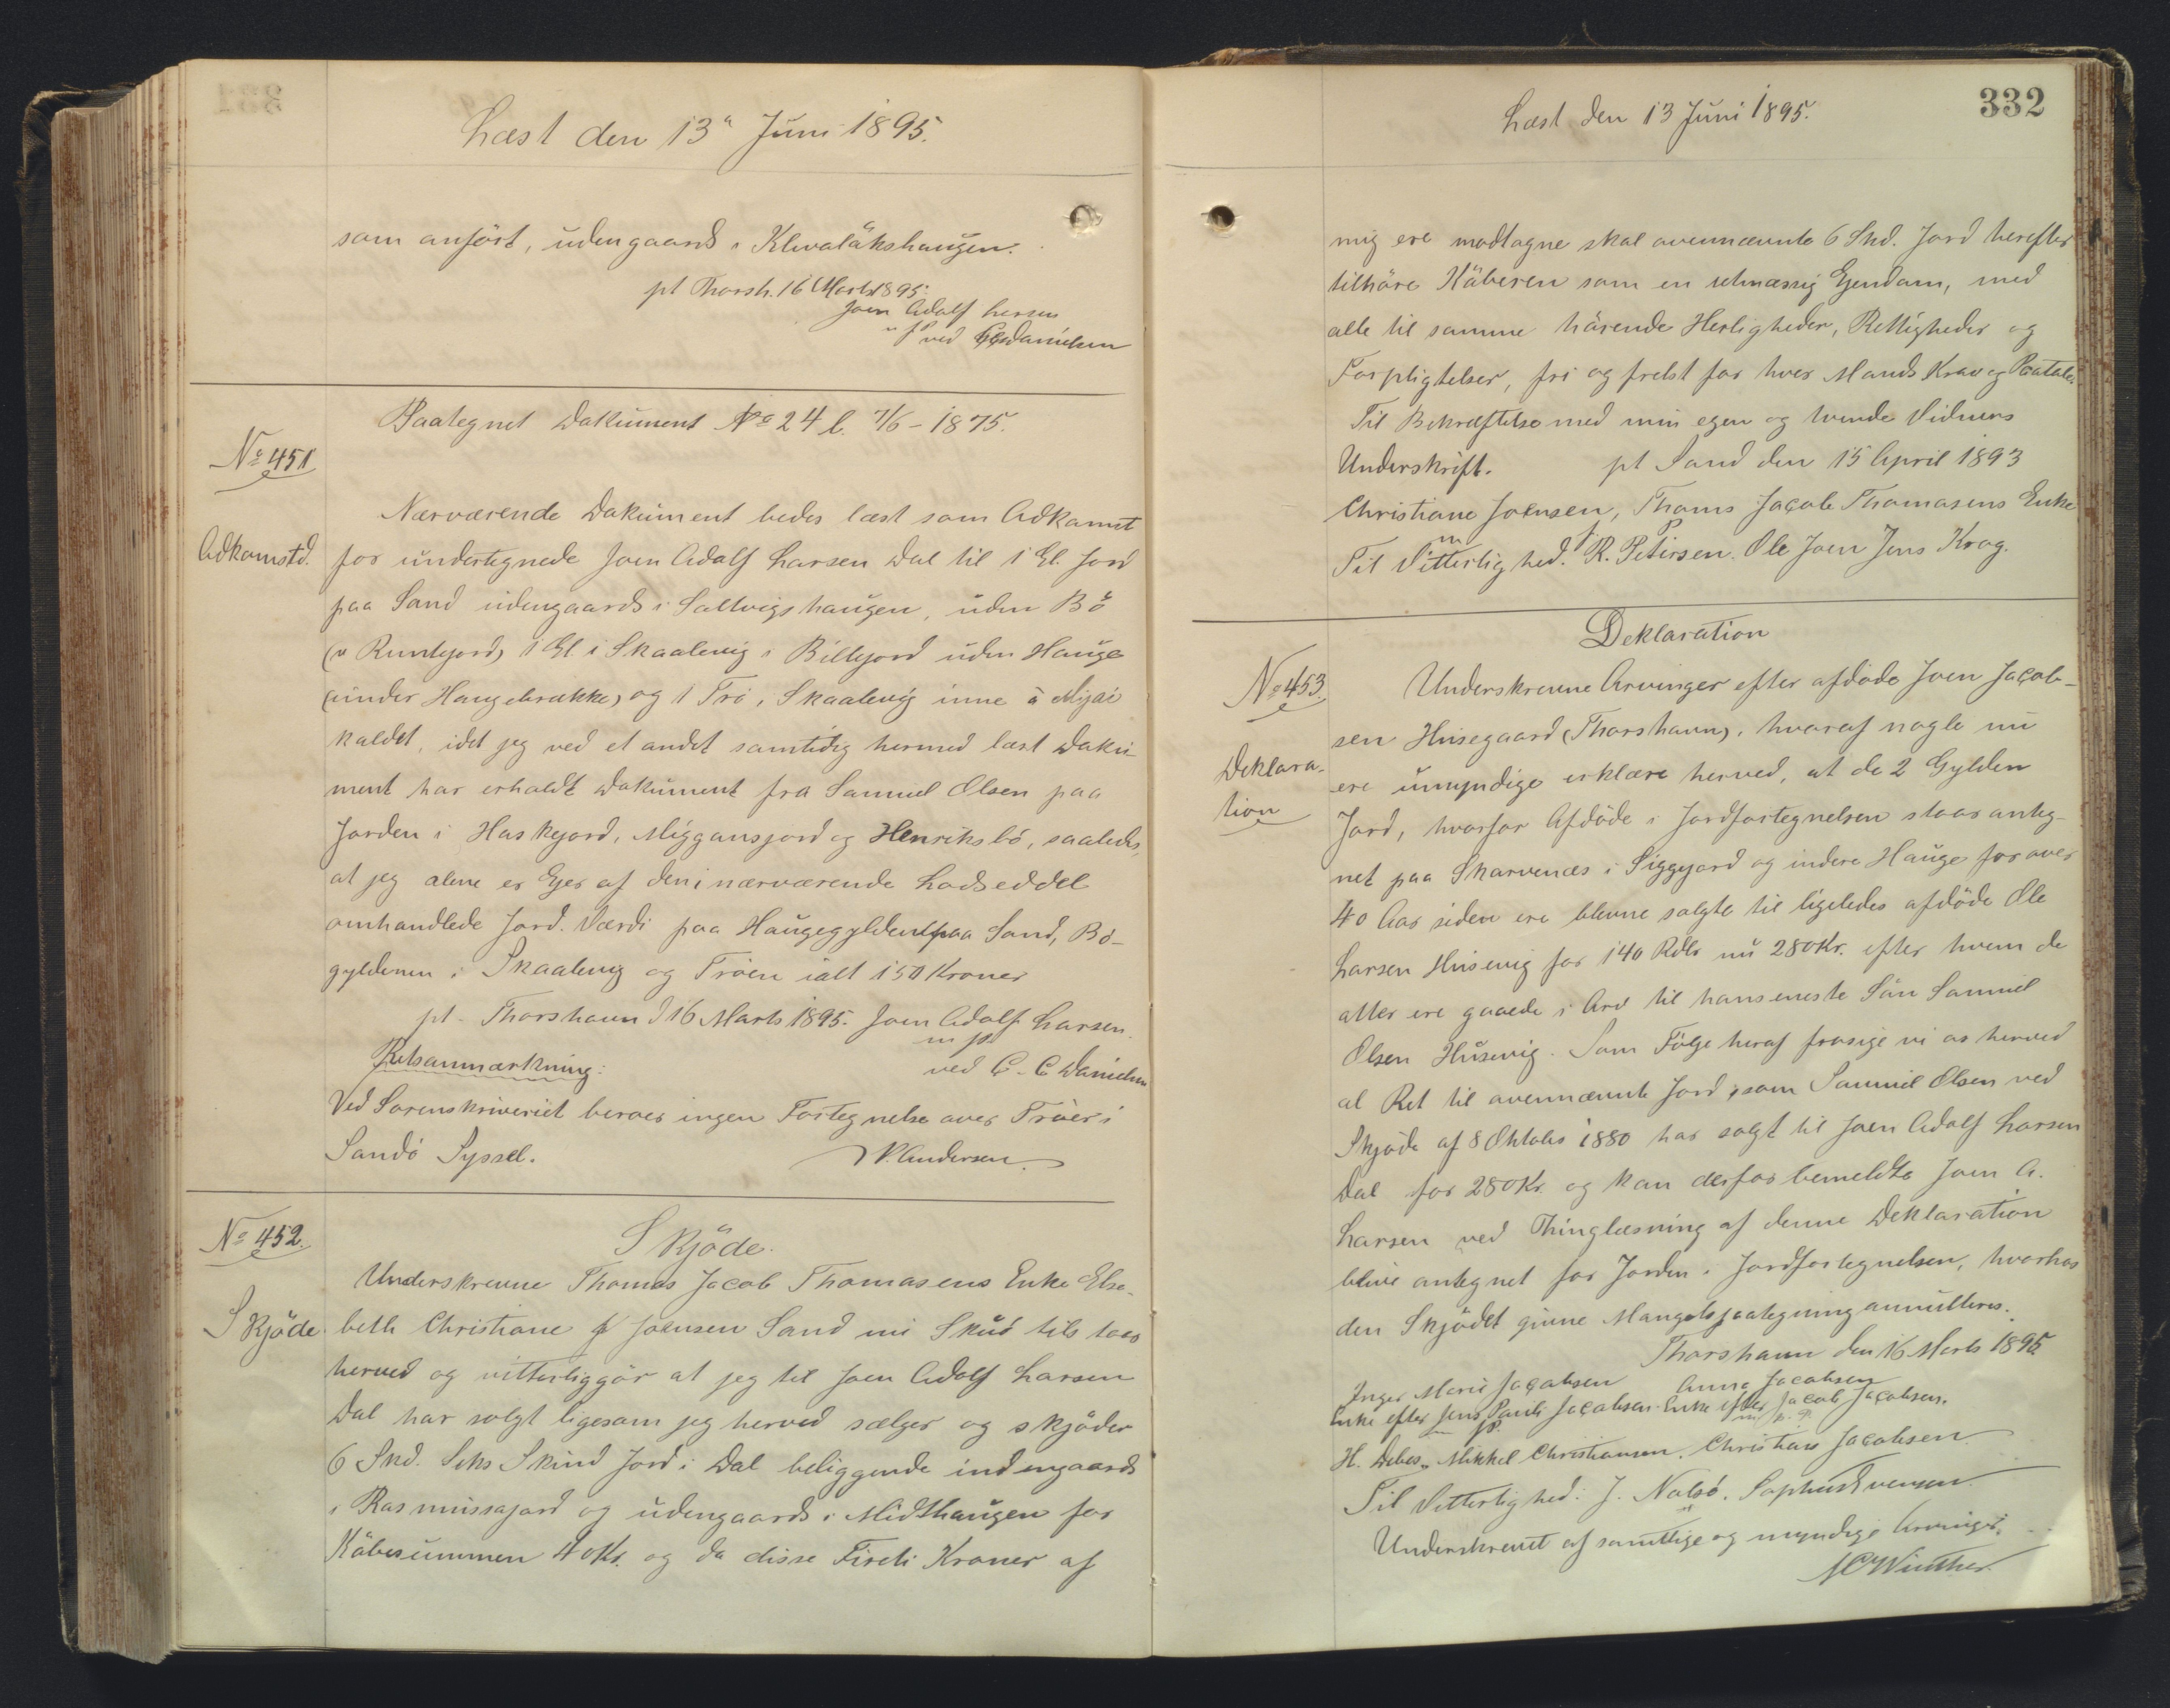 Læst den 13 Juni 1895.
som anført, udengaards i Klevaläkshaugen.
pt Thorsh. 16 Marts 1895.
Joen Adolf Larsen
m p ved C C Danielsen
Paategnet Dokument No 24 l. 7/6 - 1875.
No 451
Adkomstd.
Nærværende Dokument bedes læst som Adkomst
for undertegnede Joen Adolf Larsen Dal til 1 Gl. Jord
paa Sand udengaards i Saltvigshaugen, uden Bö
(v Runtjord) 1 Gl i Skaalevig i Billejord uden Hauge
(under Haugebrakke) og 1 Trö, Skaalevig inne á Mijai
kaldet, idet jeg ved et andet samtidig hermed læst Doku-
ment har erholdt Dokument fra Samuel Olsen paa
Jorden i Haskejord, Miggansjord og Henriksbö, saaledes,
at jeg alene er Ejer af den i nærværende Lodseddel
omhandlede Jord. Værdi paa Haugegylden paa Sand, Bö-
gyldenen i Skaalevig og Tröen ialt 150 Kroner
pt. Thorshavn d 16 Marts 1895. Joen Adolf Larsen.
m p
ved C. C Danielsen
Retsanmærkning:
Ved Sorenskriveriet beroer ingen Fortegnelse over Tröer i
Sandö Syssel.
V. Andersen.
No 452.
Skjöde.
Skjöde.
Underskrevne Thomas Jacob Thomasens Enke Else-
beth Christiane f Joensen Sand nu Skud tilstaar
herved og vitterliggör at jeg til Joen Adolf Larsen
Dal har solgt ligesom jeg herved sælger og skjöder
6 Skd. Seks Skind Jord i Dal beliggende indengaards
i Rasmussajord og udengaards i Midthaugen for
Köbesummen 40 Kr. og da disse Fireti Kroner af
332
Læst den 13 Juni 1895.
mig ere modtagne skal ovennævnte 6 Skd. Jord herefter
tilhöre Köberen som en retmæssig Ejendom, med
alle til samme hörende Herligheder, Rettigheder og
Forpligtelser, fri og frelst for hver Mands Krav og Paatale.
Til Bekræftelse med min egen og tvende Vidners
Underskrift. pt Sand den 15 April 1893
Christiane Joensen, Thoms Jacob Thomasens Enke
m f P
Til Vitterlighed. R. Petersen. Ole Joen Jens Krog.
No 453.
Deklara-
tion
Deklaration
Underskrevne Arvinger efter afdöde Joen Jacob-
sen Husegaard (Thorshavn), hvoraf nogle nu
ere umyndige erklære herved, at de 2 Gylden
Jord, hvorfor Afdöde i Jordfortegnelsen staar anteg-
net paa Skarvenæs i Siggejord og indere Hauge for over
40 Aar siden ere blevne solgte til ligeledes afdöde Ole
Larsen Husevig for 140 Rdlr nu 280 Kr. efter hvem de
atter ere gaaede i Arv til hans eneste Sön Samuel
Olsen Husevig. Som Fölge heraf frasige vi os herved
al Ret til ovennævnte Jord, som Samuel Olsen ved
Skjöde af 8 Oktober 1880 har solgt til Joen Adolf Larsen
Dal for 280 Kr. og kan derfor bemeldte Joen A.
Larsen ved Thinglæsning af denne Deklaration
blive antegnet for Jorden i Jordfortegnelsen, hvorhos
den Skjödet givne Mangelspaategning annulleres.
Thorshavn den 16 Marts 1895
Inger Marie Jacobsen Anna Jacobsen
Enke efter Jens Pauli Jacobsen. Enke efter Jacob Jacobsen.
m p. m. p. P.
H. Debes. Mikkel Christiansen. Christian Jacobsen
Til Vitterlighed: J. Nolsö. Sophus Evensen
Underskrevet af samtlige og myndige Arvinger.
M C Winther